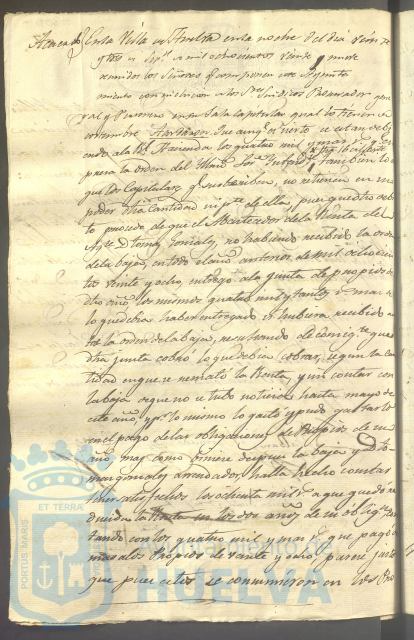 Acuerdo En la Villa de Huelva en la noche del dia veinte
y tres de Sep.e de mil ochocientos veinte y nueve
reunidos los Señores q.e componen este Ayunta
miento con inclusion de los S.res Sindicos Procurador gene
ral y Personero en su Sala capitular qual lo tienen de
costumbre Dixeron: Que aunq.e es cierto se estan debi
endo a la R.l Hacienda los quatro mil y mas r.s
para la orden del S.or tambien lo
que los Capitulares q.e suscriben, no retienen en su
poder dha cantidad ni p.te de ella, pues q.e este debi
to procede de que el Arrendador de la Renta del
D.n Tomas Gonzalez, no habiendo recibido la orden
de la baja, en todo el año anterior de mil ochocien
tos veinte y ocho, entregó a la Junta de propios de
dho año los mismos quatro mil y tantos r.s mas de
lo que debia haber entregado si hubiera recibido an
tes la orden de la baja, resultando de consig.te que
dha junta cobró lo que debia cobrar, segun la can
tidad en que se remató la Renta, y sin contar con
la baja de que no se tubo noticia hasta mayo de
este año, y p.r lo mismo lo gastó y pudo gastarlo
en el pago de las obligaciones de Propios de su
año, mas como viniere despues la baja y D.n To
mas Gonzalez arrendador, halla hecho constar
satisfechos los ochenta mil r.s a que quedó re
ducida la Renta en los dos años de con
tando con los quatro mil y mas r.s que pagó de
mas a los Propios de veinte y ocho, parece justo
que pues estos se consumieron en los Pro
PORTUS MARIS
ET TERRAE
HUELVA